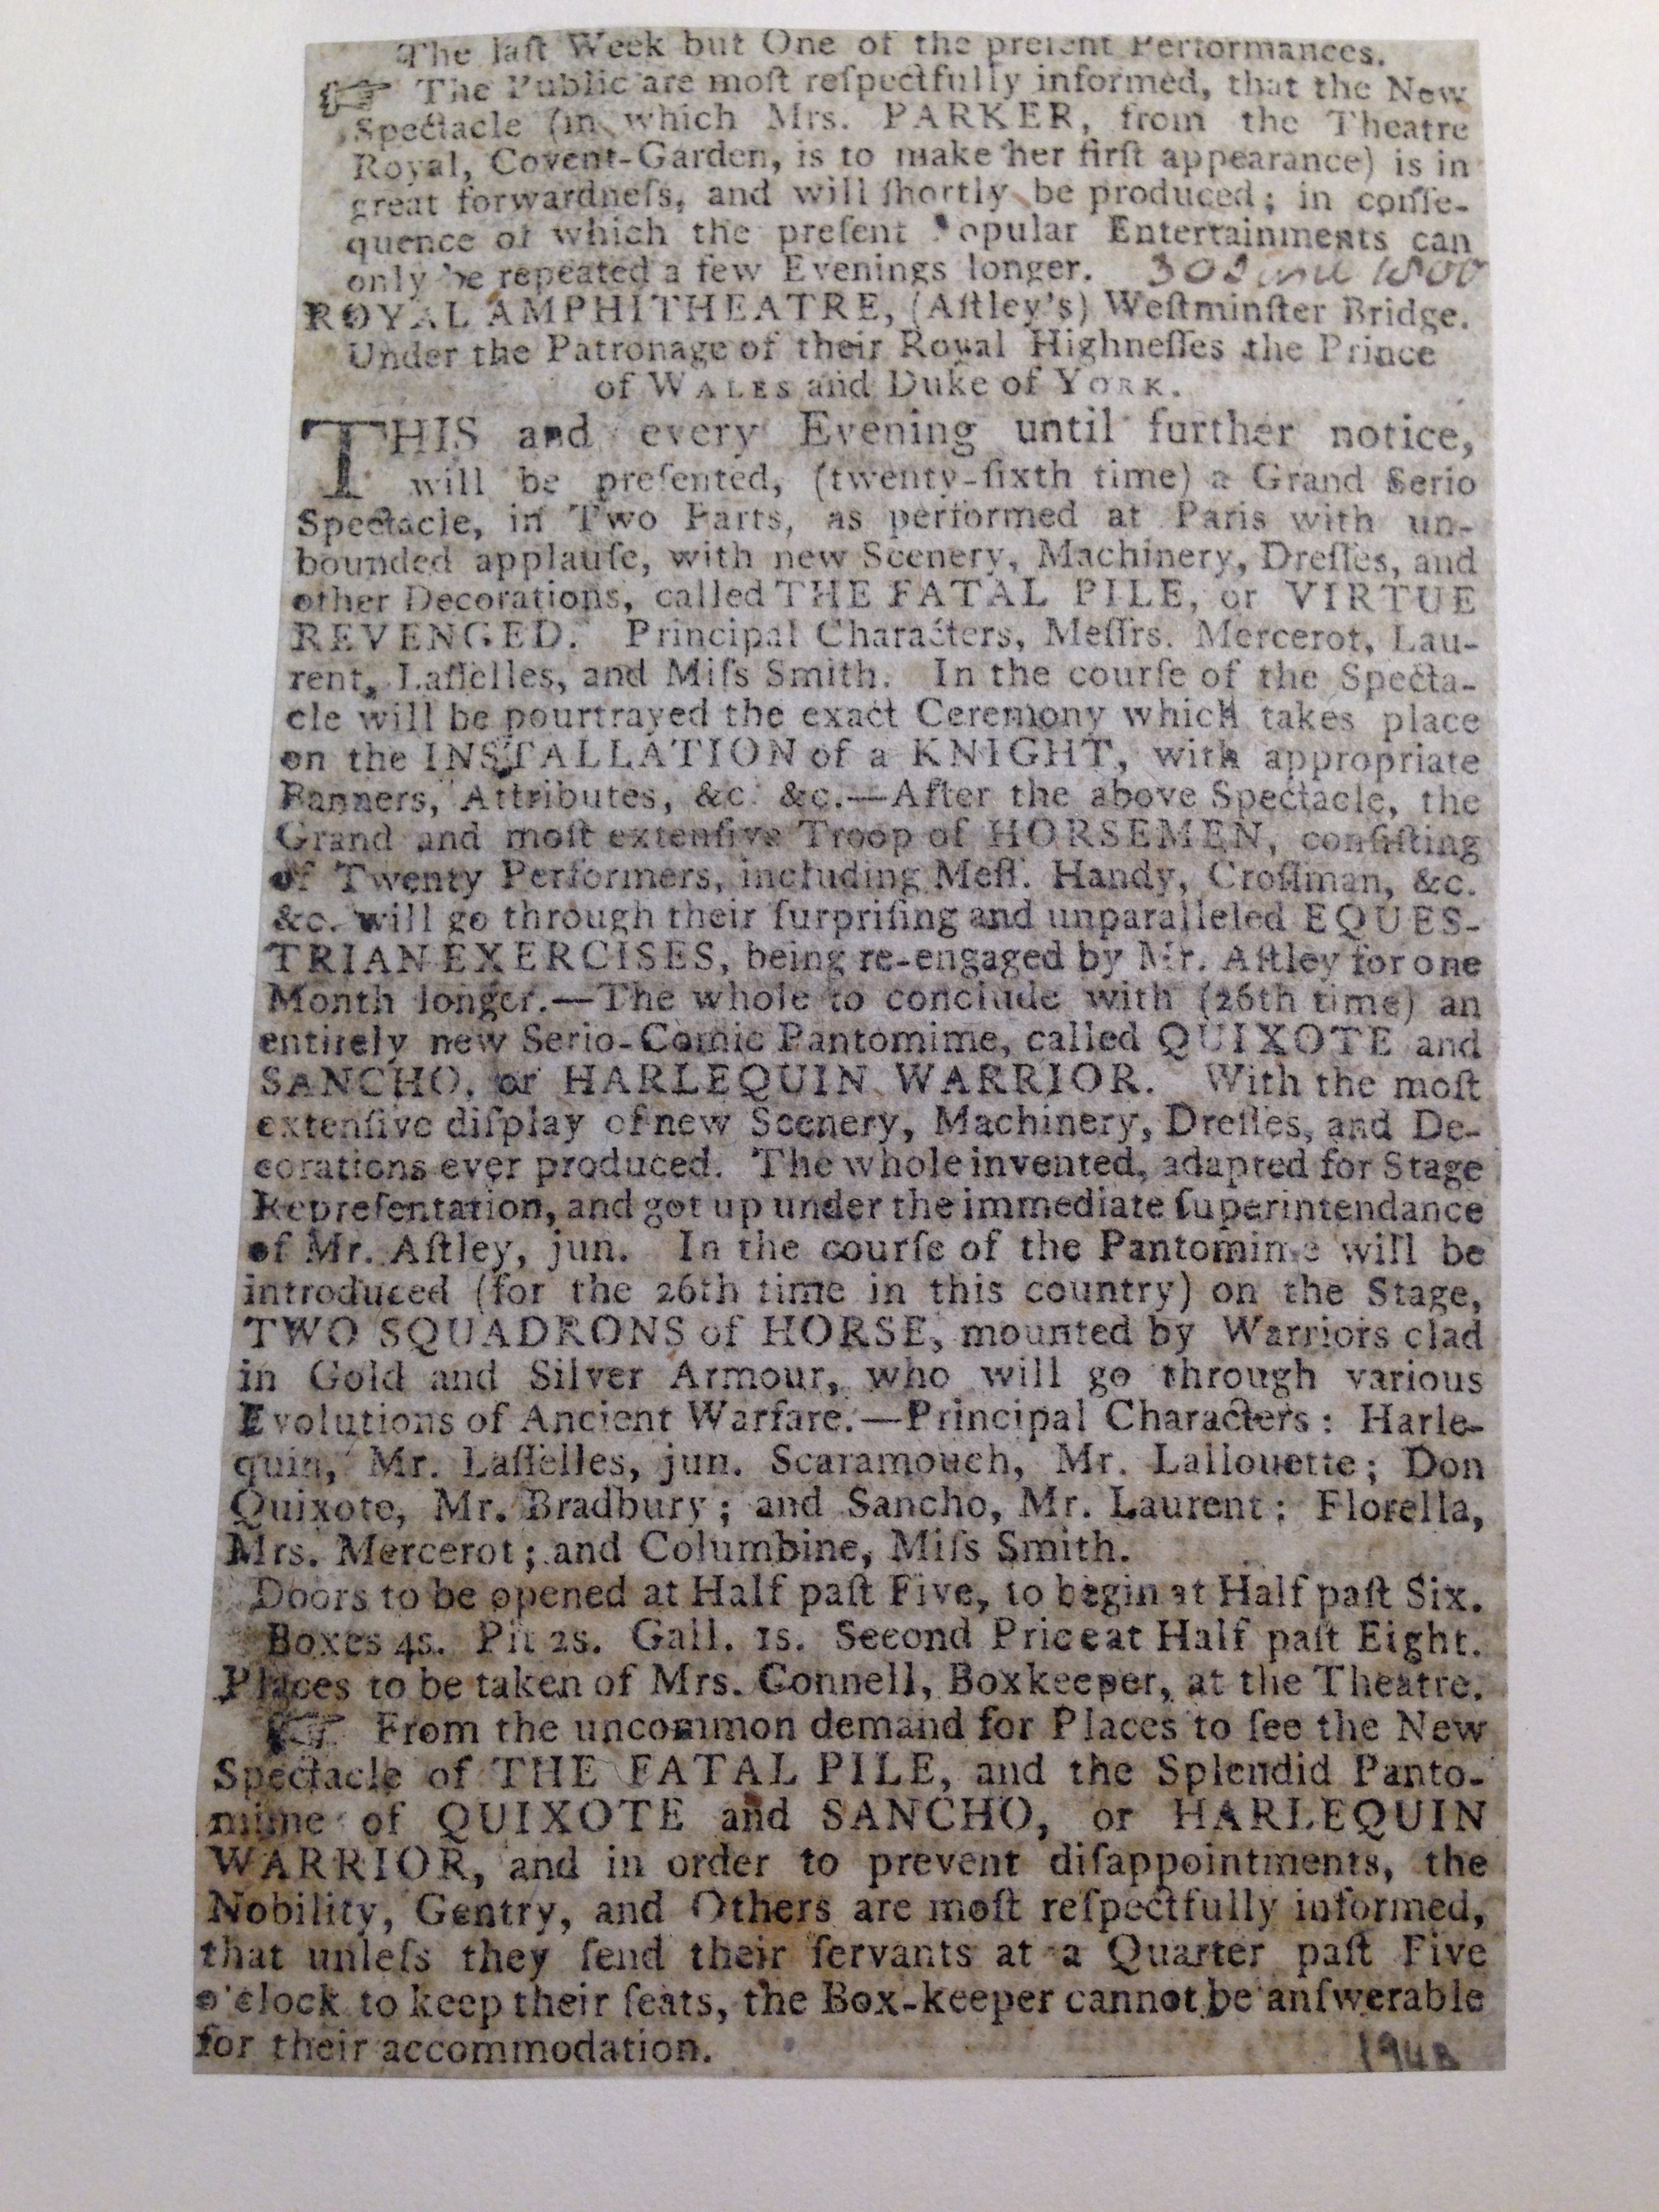 The laſt Week but One of the preſent Performances.
☞ The Public are moſt reſpectfully informed, that the New
Spectacle (in which Mrs. PARKER, from the Theatre
Royal, Covent-Garden, is to make her firſt appearance) is in
great forwardneſs, and will ſhortly be produced; in conſe-
quence of which the preſent Popular Entertainments can
only be repeated a few Evenings longer. 30 June 1800
ROYAL AMPHITHEATRE, (Aſtley's) Weſtminſter Bridge.
Under the Patronage of their Royal Highneſſes the Prince
of WALES and Duke of YORK.
THIS and every Evening until further notice,
will be preſented, (twenty-ſixth time) a Grand Serio
Spectacle, in Two Parts, as performed at Paris with un-
bounded applauſe, with new Scenery, Machinery, Dreſſes, and
other Decorations, called THE FATAL PILE, or VIRTUE
REVENGED. Principal Characters, Meſſrs. Mercerot, Lau-
rent, Laſſelles, and Miſs Smith. In the courſe of the Specta-
cle will be pourtrayed the exact Ceremony which takes place
on the INSTALLATION of a KNIGHT, with appropriate
Banners, Attributes, &c. &c.—After the above Spectacle, the
Grand and moſt extenſive Troop of HORSEMEN, conſiſting
of Twenty Performers, including Meſſ. Handy, Croſſman, &c.
&c. will go through their ſurpriſing and unparalleled EQUES-
TRIAN EXERCISES, being re-engaged by Mr. Aſtley for one
Month longer.—The whole to conclude with (26th time) an
entirely new Serio-Comic Pantomime, called QUIXOTE and
SANCHO, or HARLEQUIN WARRIOR. With the moſt
extenſive diſplay of new Scenery, Machinery, Dreſſes, and De-
corations ever produced. The whole invented, adapted for Stage
Repreſentation, and got up under the immediate ſuperintendance
of Mr. Aſtley, jun. In the courſe of the Pantomime will be
introduced (for the 26th time in this country) on the Stage,
TWO SQUADRONS of HORSE, mounted by Warriors clad
in Gold and Silver Armour, who will go through various
Evolutions of Ancient Warfare.—Principal Characters: Harle-
quin, Mr. Laſſelles, jun. Scaramouch, Mr. Lallouette; Don
Quixote, Mr. Bradbury; and Sancho, Mr. Laurent; Florella,
Mrs. Mercerot; and Columbine, Miſs Smith.
Doors to be opened at Half paſt Five, to begin at Half paſt Six.
Boxes 4s. Pit 2s. Gall. 1s. Second Price at Half paſt Eight.
Places to be taken of Mrs. Connell, Boxkeeper, at the Theatre.
☞ From the uncommon demand for Places to ſee the New
Spectacle of THE FATAL PILE, and the Splendid Panto-
mime of QUIXOTE and SANCHO, or HARLEQUIN
WARRIOR, and in order to prevent diſappointments, the
Nobility, Gentry, and Others are moſt reſpectfully informed,
that unleſs they ſend their ſervants at a Quarter paſt Five
o'clock to keep their ſeats, the Box-keeper cannot be anſwerable
for their accommodation.